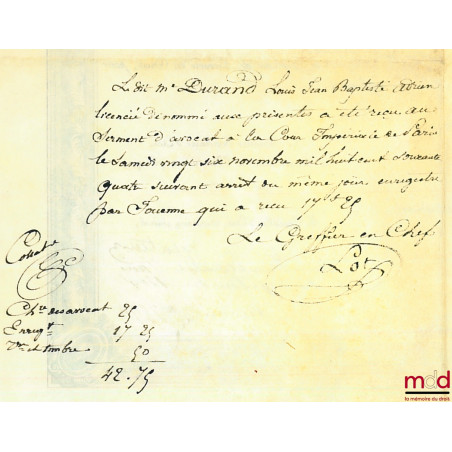 Le dit Mr. Durand Louis Jean Baptiste Adrien
licencié dénommé aux présentes a été reçu au
Serment d'avocat à la Cour Impériale de Paris
le Samedi vingt six novembre mil huit cent soixante
quatre suivant arrêt du même jour enregistré
par Jouenne qui a reçu 17f 25
Le Greffier en Chef
Lot
Collat
Ch.re des avocat 25
Enregt 17 25
et timbre 50
42.75
mdd
la mémoire du droit.